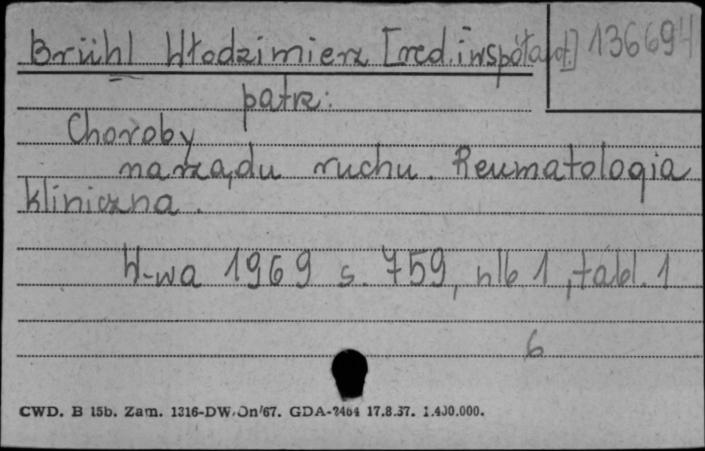 Brühl Włodzimierz [red. i współaut.] 136694
patrz:
Choroby
narządu ruchu. Reumatologia
kliniczna.
W-wa 1969 s. 759, nlb 1, tabl. 1
6
CWD. B 15b. Zam. 1316-DW. On/67. GDA-2464 17.8.67. 1.400.000.